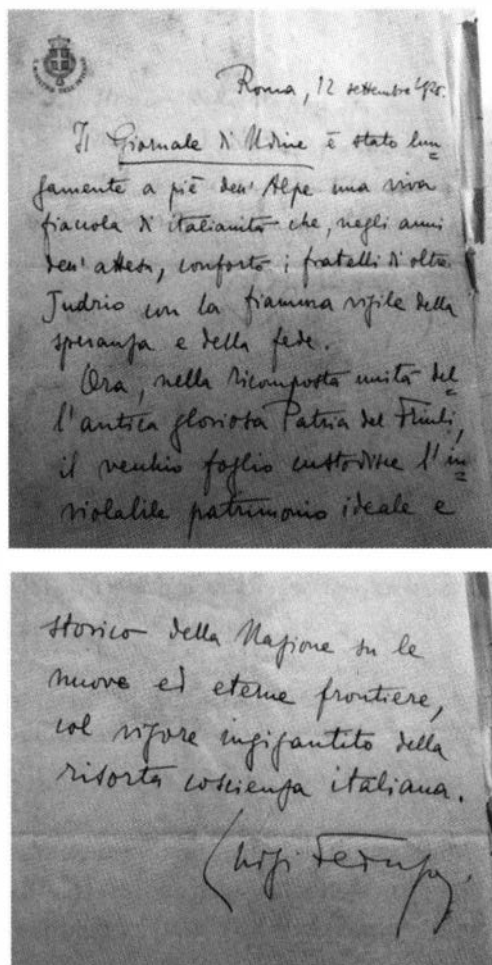 IL MINISTRO DELL'INTERNO
Roma, 12 settembre 1925.
Il Giornale di Udine è stato lun=
gamente a piè dell'Alpe una viva
fiaccola di italianità che, negli anni
dell'attesa, confortò i fratelli di oltre
Judrio con la fiamma vigile della
speranza e della fede.
Ora, nella ricomposta unità del=
l'antica gloriosa Patria del Friuli,
il vecchio foglio custodisce l'in=
violabile patrimonio ideale e
storico della Nazione su le
nuove ed eterne frontiere,
col vigore ingigantito della
risorta coscienza italiana.
Luigi Federzoni